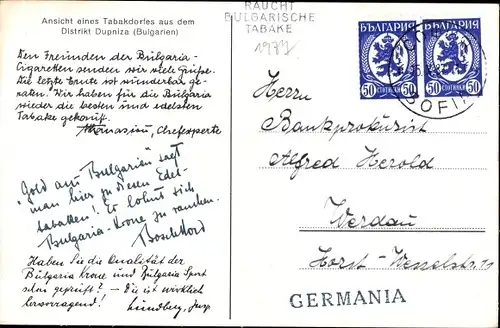 Ansicht eines Tabakdorfes aus dem
Distrikt Dupniza (Bulgarien)
Den Freunden der Bulgaria-
Cigaretten senden wir viele Grüße.
Die letzte Ernte ist wunderbar ge-
raten. Wir haben für die Bulgaria
wieder die besten und edelsten
Tabake gekauft.
Athanasiou, Chefexperte
"Gold aus Bulgarien" sagt
man hier zu diesen Edel-
tabaken! Es lohnt sich
Bulgaria-Krone zu rauchen.
Haben Sie die Qualität der
Bulgaria Krone und Bulgaria Sport
schon geprüft? - Die ist wirklich
hervorragend! Lundberg, Insp.
RAUCHT
BULGARISCHE
TABAKE
БЪЛГАРИЯ
50 СТОТИНКИ 50
БЪЛГАРИЯ
50 СТОТИНКИ 50
SOFIA
Herrn
Bankprokurist
Alfred Herold
Werdau
Horst-Wesselstr.
GERMANIA